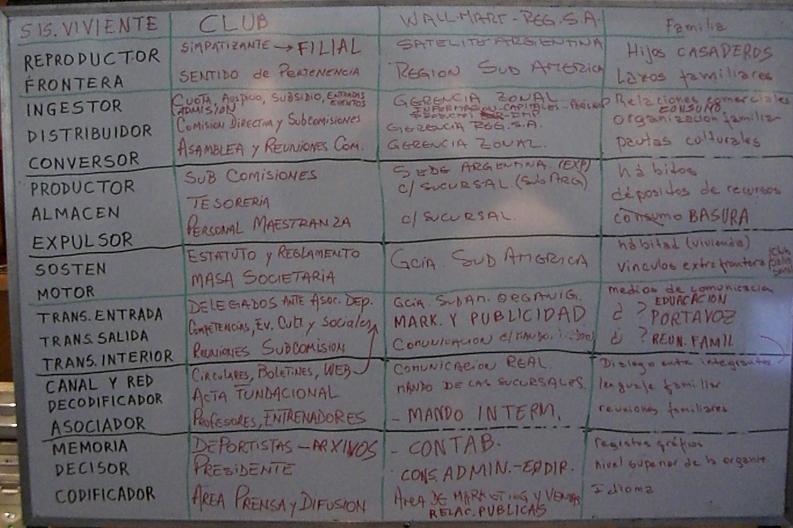 SIS. VIVIENTE CLUB WALL-MART-REG.S.A. Familia
REPRODUCTOR SIMPATIZANTE → FILIAL SATELITE ARGENTINA Hijos CASADEROS
FRONTERA SENTIDO de PERTENENCIA REGION SUD AMERICA Lazos familiares
INGESTOR CUOTA, AUSPICIO, SUBSIDIO, ENTRADAS EVENTOS ADMISIÓN GERENCIA ZONAL Relaciones comerciales CONSUMO
DISTRIBUIDOR COMISION DIRECTIVA y SUBCOMISIONES GERENCIA REG.S.A. organización familiar
CONVERSOR ASAMBLEA y REUNIONES COM. GERENCIA ZONAL. pautas culturales
PRODUCTOR SUB COMISIONES SEDE ARGENTINA (EXP) C/ SUCURSAL (SUB ARG) hábitos
ALMACEN TESORERIA depósitos de recursos
EXPULSOR PERSONAL MAESTRANZA C/ SUCURSAL. consumo BASURA
SOSTEN ESTATUTO y REGLAMENTO GCIA. SUD AMERICA hábitad (vivienda)
MOTOR MASA SOCIETARIA vinculos extrafrontera
TRANS. ENTRADA DELEGADOS ANTE ASOC. DEP. GCIA. SUDAM. ORGANIG. medios de comunicacion
TRANS. SALIDA COMPETENCIAS, EV. CULT. y SOCIALES MARK. Y PUBLICIDAD ¿ ? EDUCACION PORTAVOZ
TRANS. INTERIOR REUNIONES SUBCOMISION COMUNICACION ¿ ? REUN. FAMIL
CANAL Y RED CIRCULARES, BOLETINES, WEB COMUNICACION REAL Dialogo entre integrantes
DECODIFICADOR ACTA FUNDACIONAL MANDO DE LAS SUCURSALES. lenguaje familiar
ASOCIADOR PROFESORES, ENTRENADORES - MANDO INTERM. reuniones familiares
MEMORIA DEPORTISTAS - ARXIVOS - CONTAB. registros gráficos
DECISOR PRESIDENTE CONS. ADMIN. nivel superior de la
CODIFICADOR AREA PRENSA y DIFUSION AREA DE MARKETING Y VENTAS Idioma
RELAC. PUBLICAS